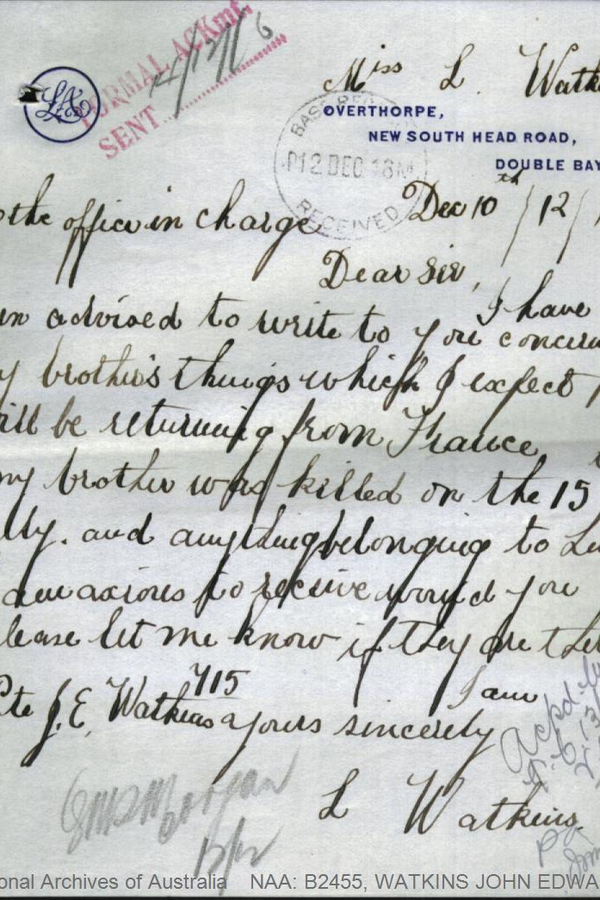 FORMAL ACKmt.
SENT 14/12/16
Miss L. Watk
OVERTHORPE,
NEW SOUTH HEAD ROAD,
DOUBLE BAY
BASE REC
P12 DEC 16M
RECEIVED
Dec 10th / 12 /
o the office in charge
Dear Sir,
I have
en advised to write to you concern
y brother's things which I expect
ill be returning from France
my brother was killed on the 15
lly. and anything belonging to
am axious to receive would you
lease let me know if they are
Pte J. E. Watkins 715
I am
yours sincerely
L Watkins.
Ackd
onal Archives of Australia NAA: B2455, WATKINS JOHN EDWA